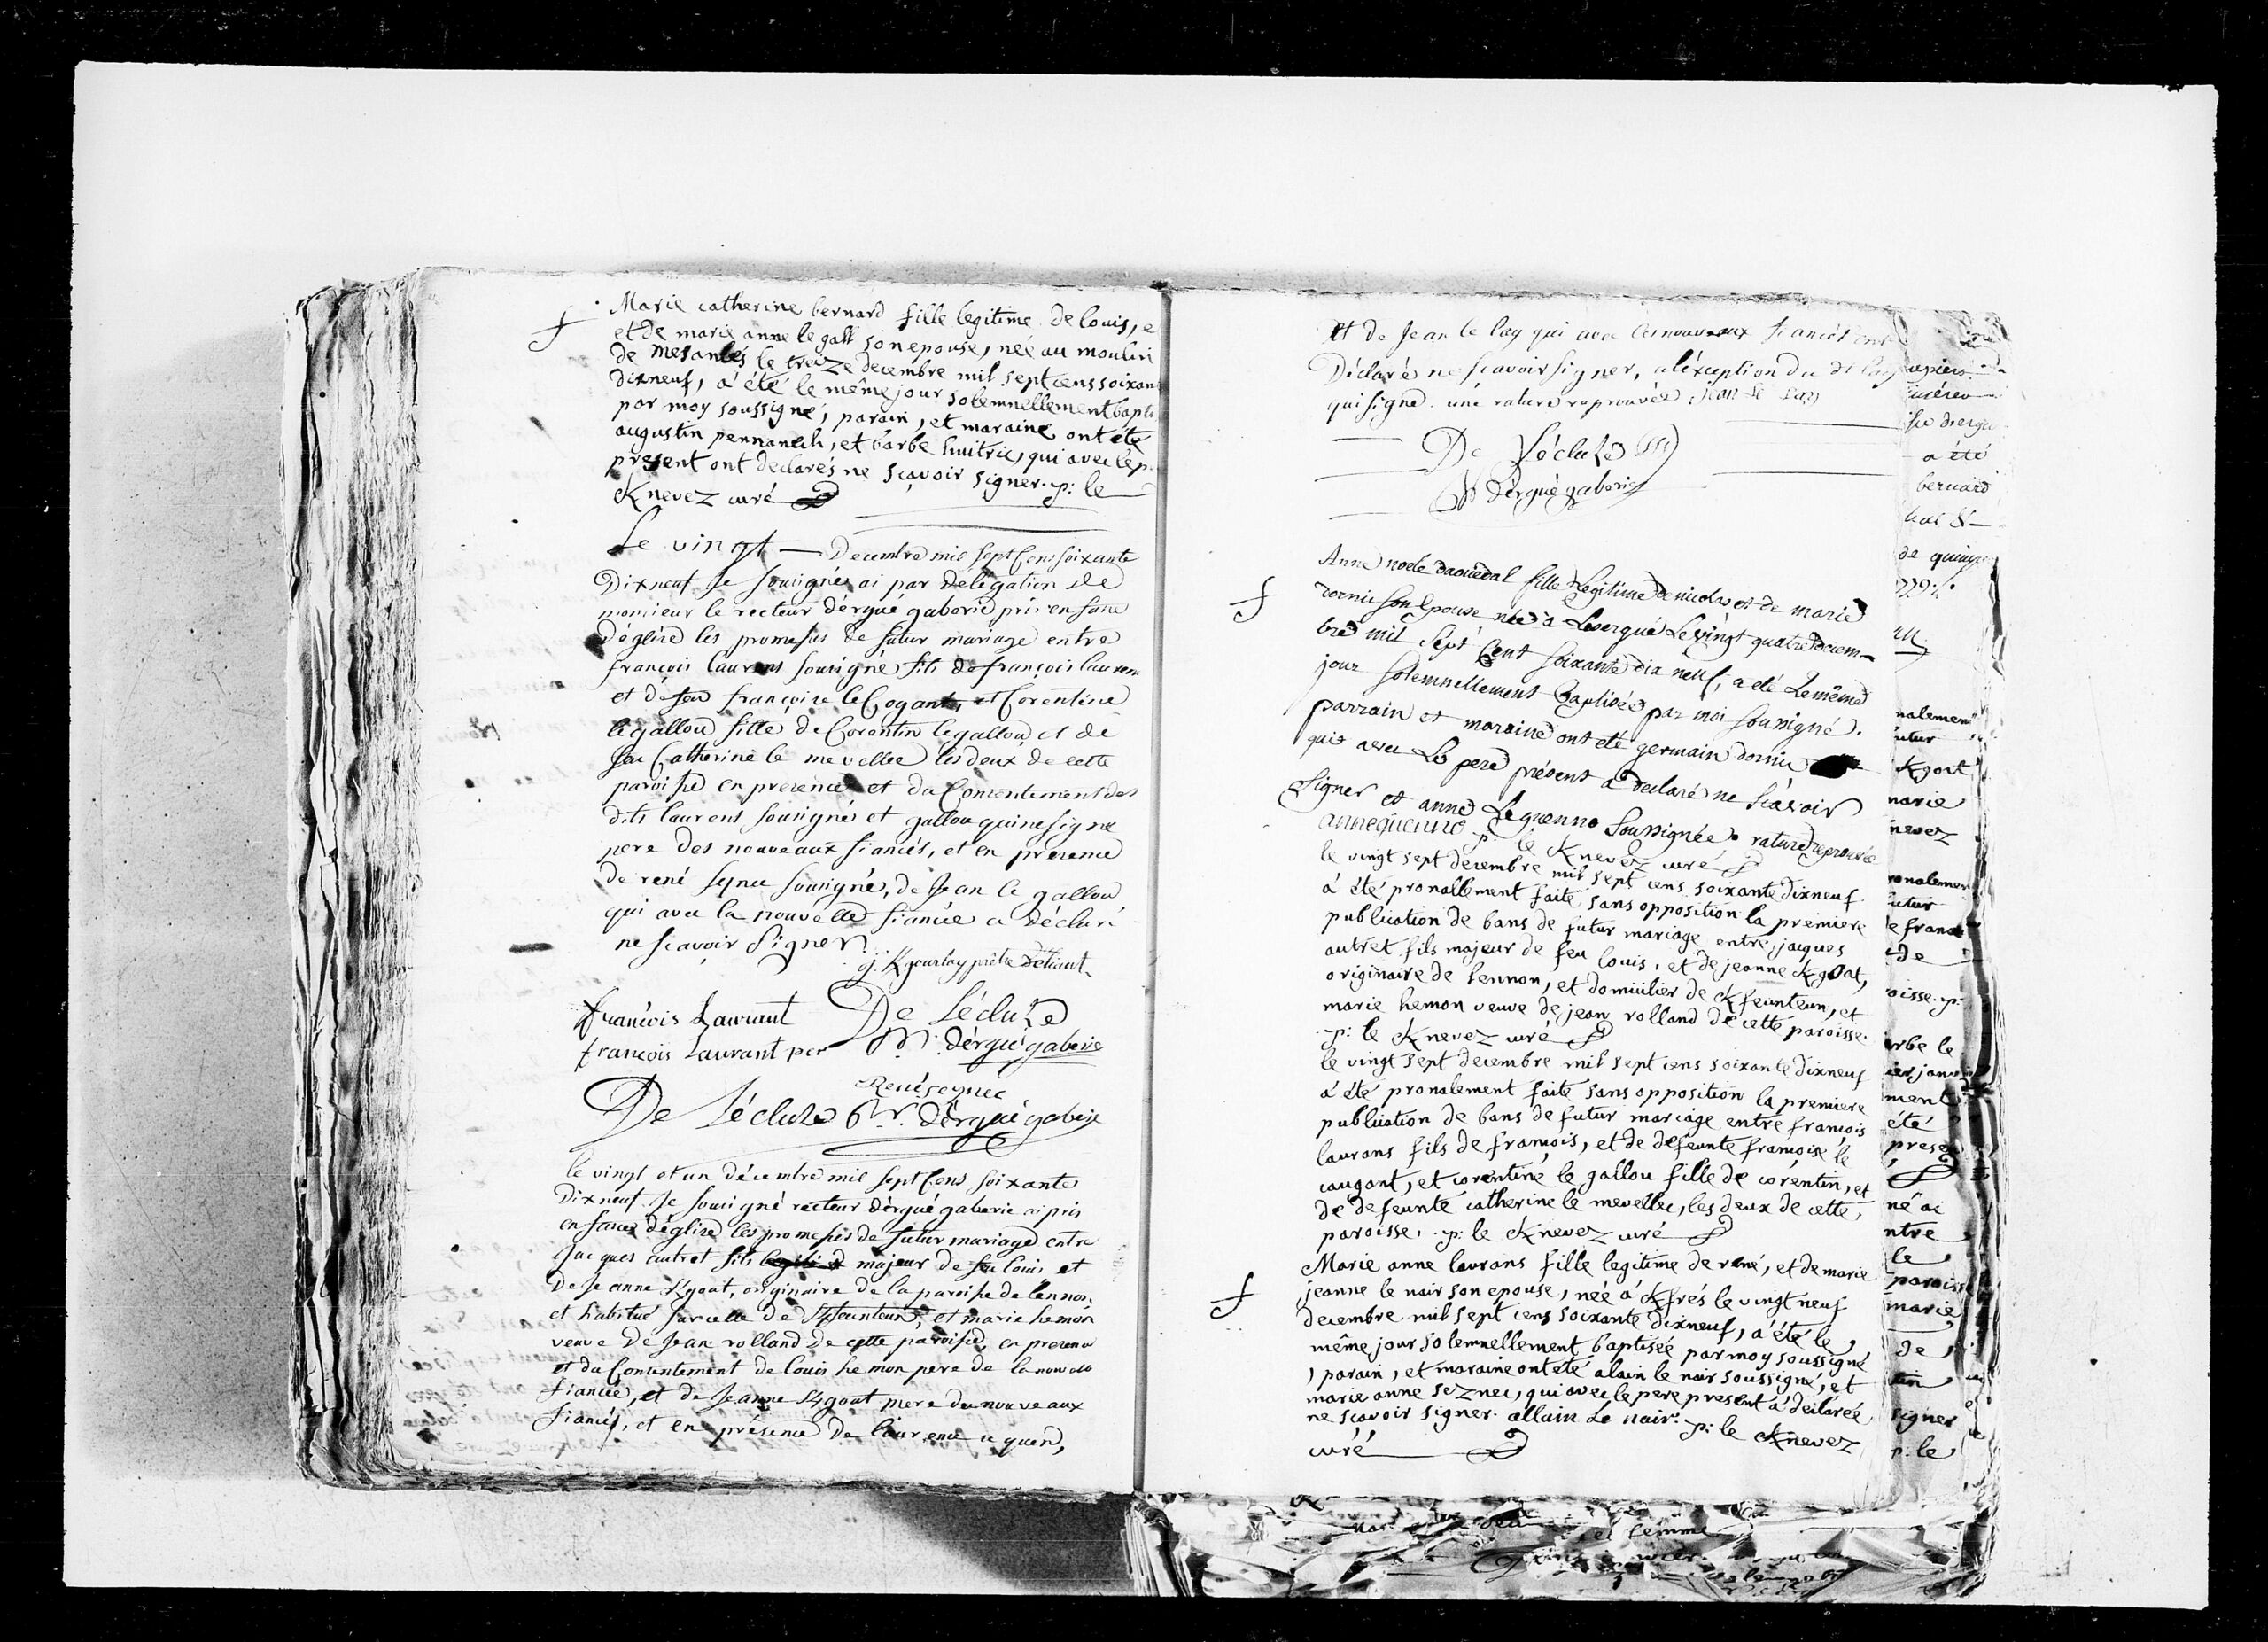 Marie catherine bernard fille legitime de louis, e
et de marie anne le gall son epouse, née au moulin
de mesanlés le treize decembre mil sept cens soixan
dixneuf, a été le même jour solemnellement bapti
par moy soussigné, parain, et maraine ont été
augustin pennanech, et barbe huitric, qui avec le p.
present ont declarés ne sçavoir signer. p: le
Knevez curé
Le vingt — Decembre mil sept Cens soixante
Dixneuf Je sousigné ai par délégation de
monsieur le recteur dèrgué gaberic pris en face
d'église les promesses de futur mariage entre
françois laurens sousigné fils de françois lauren
et de feu françoise le Cogant, et Corentine
le gallou fille de Corentin le gallou et de
feu Catherine le mevellec les deux de cette
paroisse en presence et du Consentement des
dits laurens sousigné et gallou qui ne signe
pere des nouveaux fiancés, et en presence
de rené seznec sousigné, de Jean le gallou
qui avec la nouvelle fiancée a déclaré
ne scavoir signer
j. Kgourlay prêtre
françois Laurant De Lécluze
françois Laurant per Rr. dérgué gaberic
René seznec
De Lécluze Rr. dérgué gaberic
le vingt et un décembre mil sept Cens soixante
Dixneuf Je sousigné recteur dèrgué gaberic ai pris
en face d'église les promesses de futur mariage entre
Jacques autret fils majeur de feu louis et
De Jeanne Kgoat, originaire de la paroisse de lennon,
et habitué sur celle de Kfeunteun, et marie hemon
veuve De Jean rolland de cette paroisse, en presence
et du Consentement de louis hemon pere de la nouvelle
fiancée, et de Jeanne Kgoat mere du nouveaux
fiancés, et en présence De laurence
et de Jean le lay qui avec les nouveaux fiancés ont
Déclaré ne scavoir signer, a l'éxception du dt lay
qui signe. une rature raprouvée Jean le Lay
De Lécluze
Rr dèrgué gaberic
Anne noele daouedal fille Légitime de nicolas et de marie
dornic son Epouse née à Lesergué Le vingt quatre decem-
bre mil sept Cent soixante dix neuf, a été Le même
jour solemnellement Baptisée par moi soussigné.
parrain et maraine ont eté germain dornic
qui avec Le pere présent a declaré ne scavoir
signer et anne Leguenno soussignée rature reprouvée
anneguenno p: le Knevez curé
le vingt sept decembre mil sept cens soixante dixneuf
a été pronallement faite sans opposition la premiere
publication de bans de futur mariage entre, jaques
autret fils majeur de feu louis, et de jeanne Kgoat,
originaire de lennon, et domicilier de Kfeunteun, et
marie hemon veuve de jean rolland de cette paroisse.
p: le Knevez curé
le vingt sept decembre mil sept cens soixante dixneuf
a été pronalement faite sans opposition la premiere
publication de bans de futur mariage entre françois
laurans fils de françois, et de defeunte françoise le
caugant, et corentine le gallou fille de corentin, et
de defeunte catherine le mevellec, les deux de cette
paroisse. p: le Knevez curé
Marie anne laurans fille legitime de rené, et de marie
jeanne le nair son epouse, née à Kfrés le vingt neuf
decembre mil sept cens soixante dixneuf, a été le
même jour solemnellement baptisée par moy soussigné
, parain, et maraine ont eté alain le nair soussigné, et
marie anne seznec, qui avec le pere present a declarée
ne sçavoir signer. allain Le nair. p: le Knevez
curé
a été
bernard
de quimper
1779
nalement
futur
Kgoat
marie
nevez
ronalement
futur
de
oisse. p:
erbe le
ment
été
prese
né ai
ntre
le
paroiss
marie
de
signer
p: le